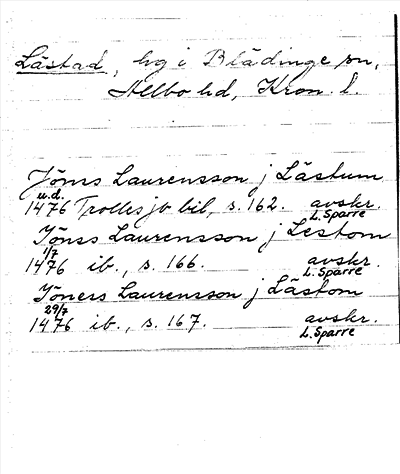 Låstad, hg i Blädinge sn,
Allbo hd, Kron. l.
Jöns Laurensson j Låstum
u.d.
1476 Trolles jb bil, s. 162. avskr.
L. Sparre
Jönss Laurensson j Lestom
1/7
1476 ib., s. 166. avskr.
L. Sparre
Jöners Laurensson j Låstom
29/7
1476 ib., s. 167. avskr.
L. Sparre